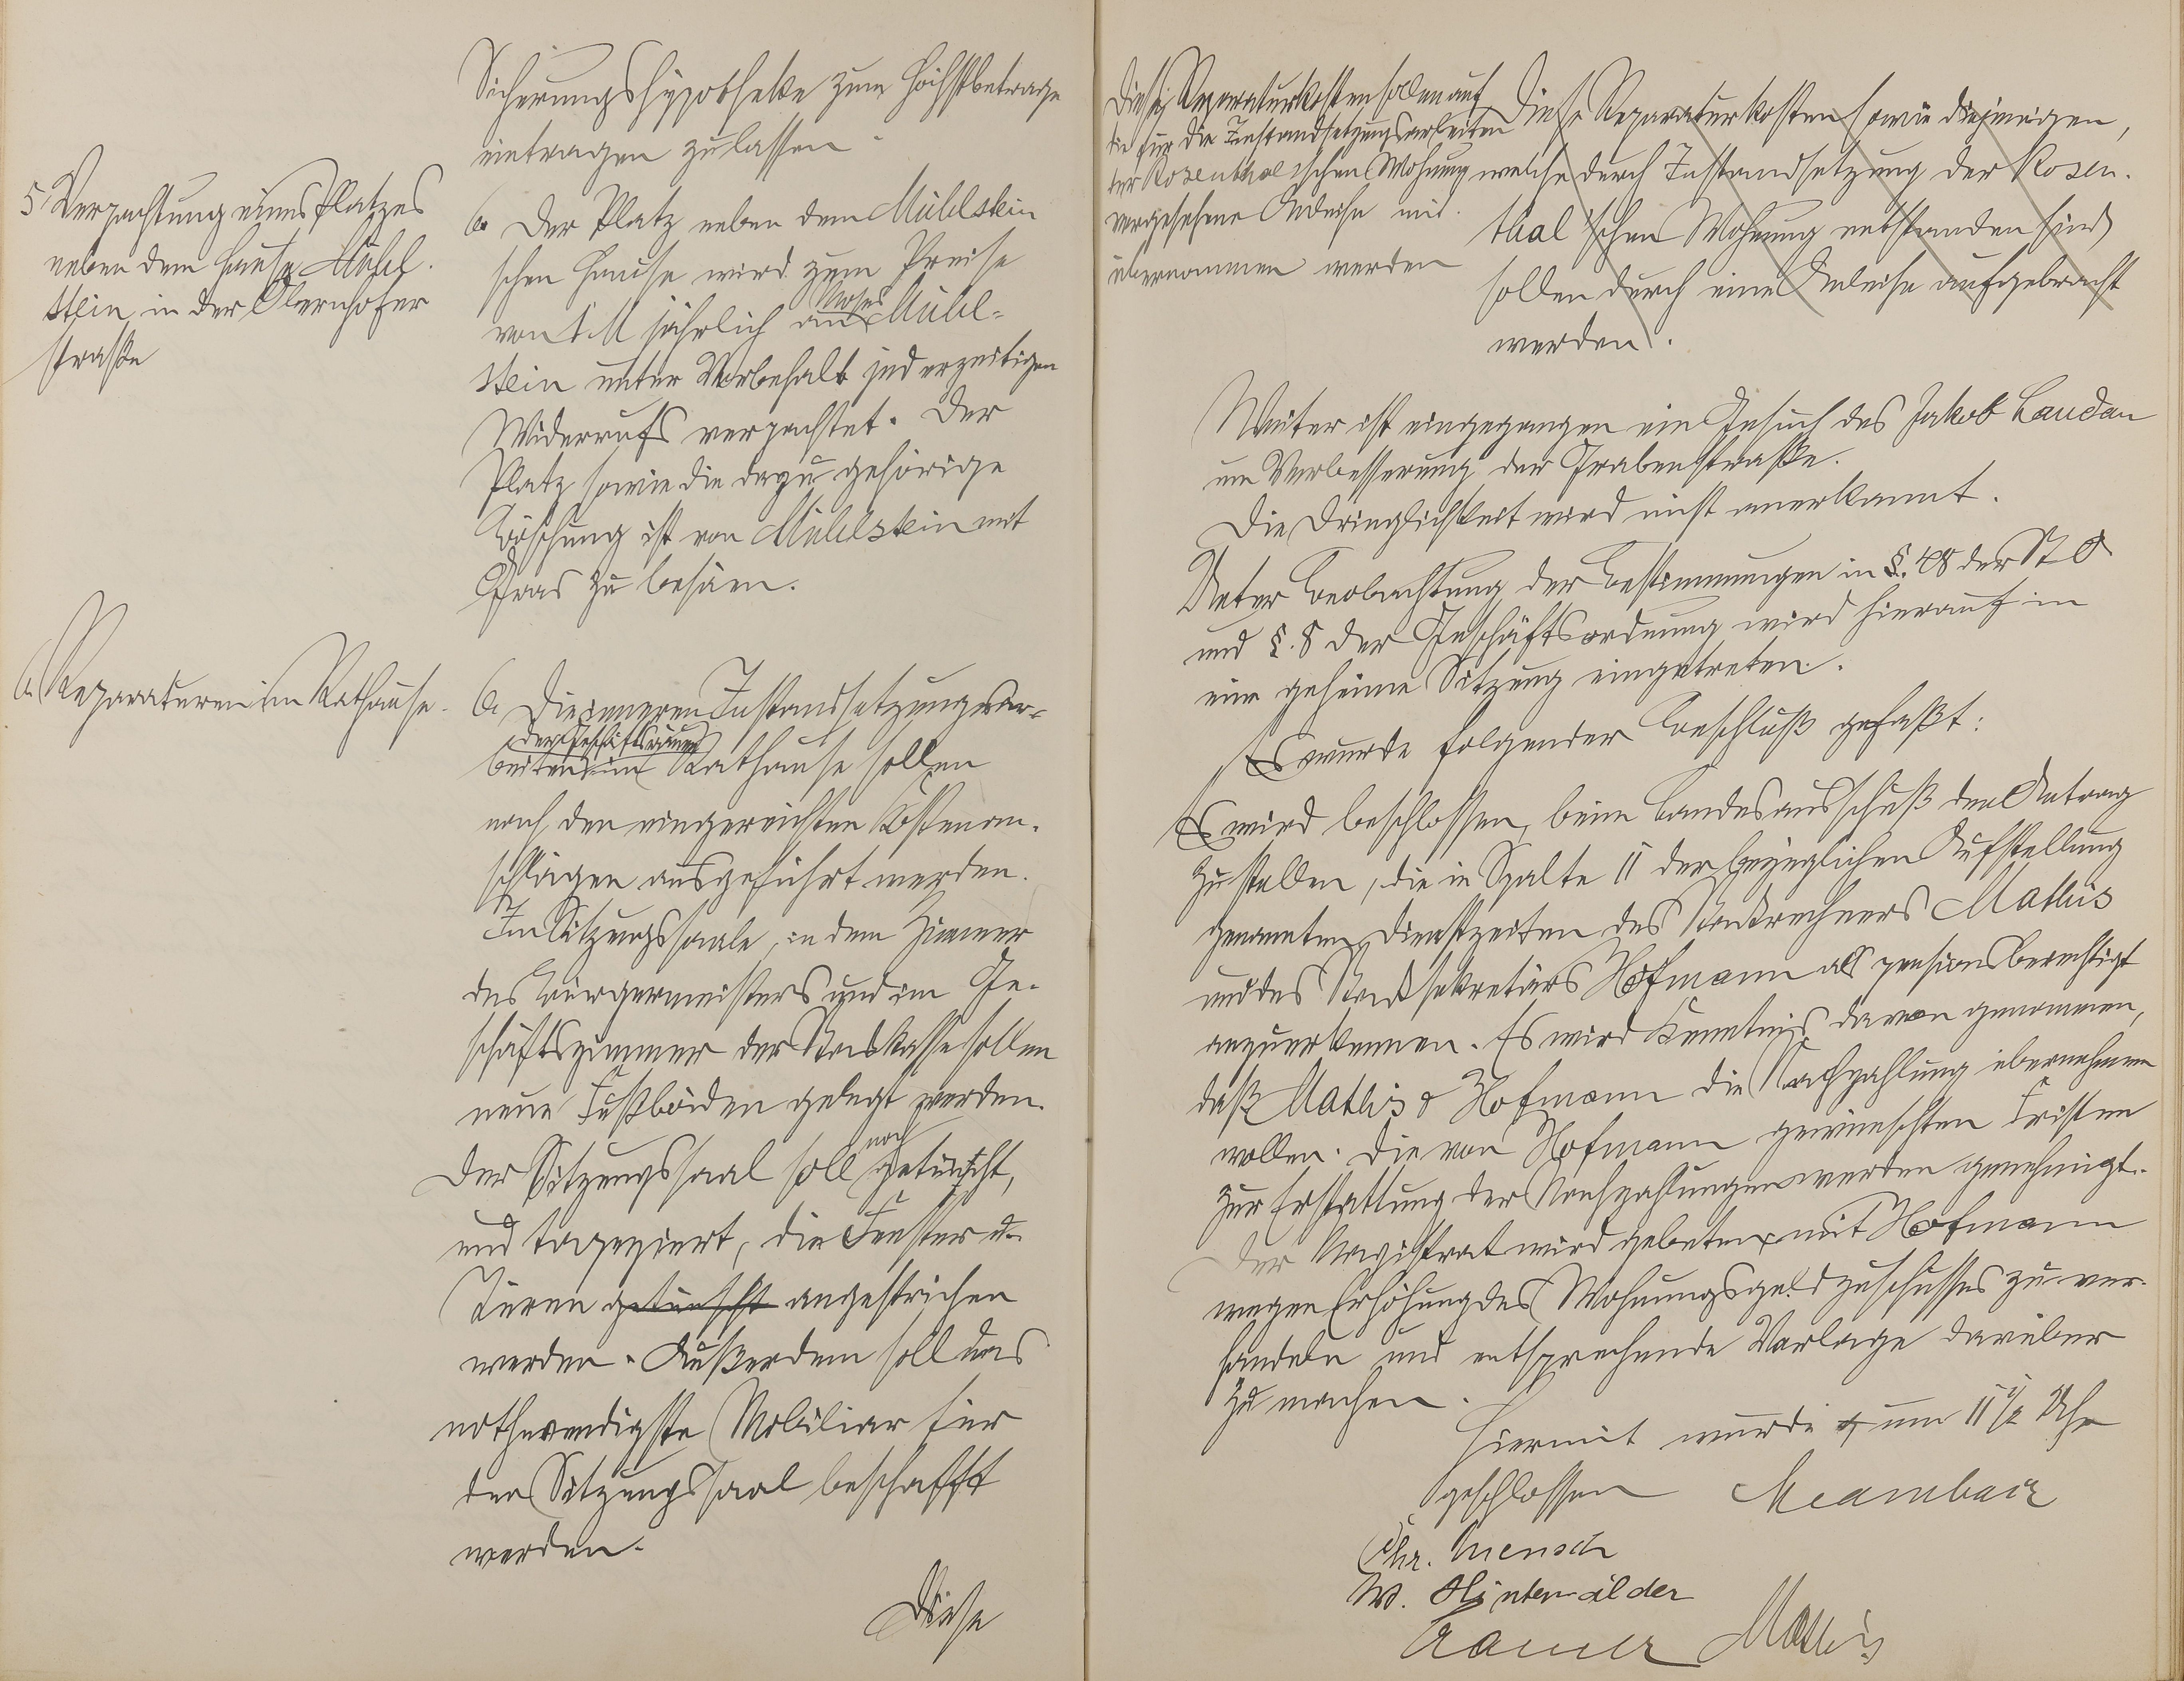 Sicherungshypotheke zum Höchstbetrage
eintragen zu lassen.
5 Verpachtung eines Platzes
neben dem Hause Mühl-
stein in der Obernhofer
straße
Der Platz neben dem Mühlstein
schen Hause wird zum Preise
von 1 M jährlich an Moses Mühl-
stein unter Vorbehalt jederzeitigen
Widerrufs verpachtet. Der
Platz sowie die dazu gehörige
Böschung ist von Mühlstein mit
Gras zu besäen.
6. Reparaturen im Rathause.
6. Die inneren Instandsetzungsar-
der Geschäftsräume
beiten im Rathause sollen
nach den eingereichten Kostenan-
schlägen ausgeführt werden.
Im Sitzungssaale, in dem Zimmer
des Bürgermeisters und im Ge-
schäftszimmer der Stadtkasse sollen
neue Fußböden gelegt werden.
Der Sitzungssaal soll noch getüncht,
und tapeziert, die Fenster u.
Türen getüncht angestrichen
werden. Außerdem soll das
nothwendigste Mobiliar für
den Sitzungssaal beschafft
werden.
Diese
Diese Reparaturkosten sollen auf
die für die Instandsetzungsarbeiten
der Rosenthalschen Wohnung
vorgesehene Anleihe mit
übernommen werden
Diese Reparaturkosten sowie diejenigen,
welche durch Instandsetzung der Rosen-
thal'schen Wohnung entstanden sind
sollen durch eine Anleihe aufgebracht
werden.
Weiter ist eingegangen ein Gesuch des Jakob Landau
um Verbesserung der Grabenstraße.
Die Dringlichkeit wird nicht anerkannt.
Unter Beobachtung der Bestimmungen in §. 48 der St O
und §. 8 der Geschäftsordnung wird hierauf in
eine geheime Sitzung eingetreten.
Es wurde folgender Beschluß gefaßt:
Es wird beschlossen, beim Landesausschuß den Antrag
zu stellen, die in Spalte 11 der bezüglichen Aufstellung
genannten Dienstzeiten des Stadtrechners Mathis
und des Stadtsekretärs Hofmann als pensionsberechtigt
anzuerkennen. Es wird Kenntnis davon genommen,
daß Mathis & Hofmann die Nachzahlung übernehmen
wollen. Die von Hofmann gewünschten Fristen
zur Erstattung der Nachzahlungen werden genehmigt.
Der Magistrat wird gebeten mit Hofmann
wegen Erhöhung des Wohnungsgeldzuschusses zu ver-
handeln und entsprechende Vorlage darüber
zu machen.
Hiermit wurde um 11 1/2 Uhr
geschlossen
Chr. Mensch
W. Hinterwälder
Mathis